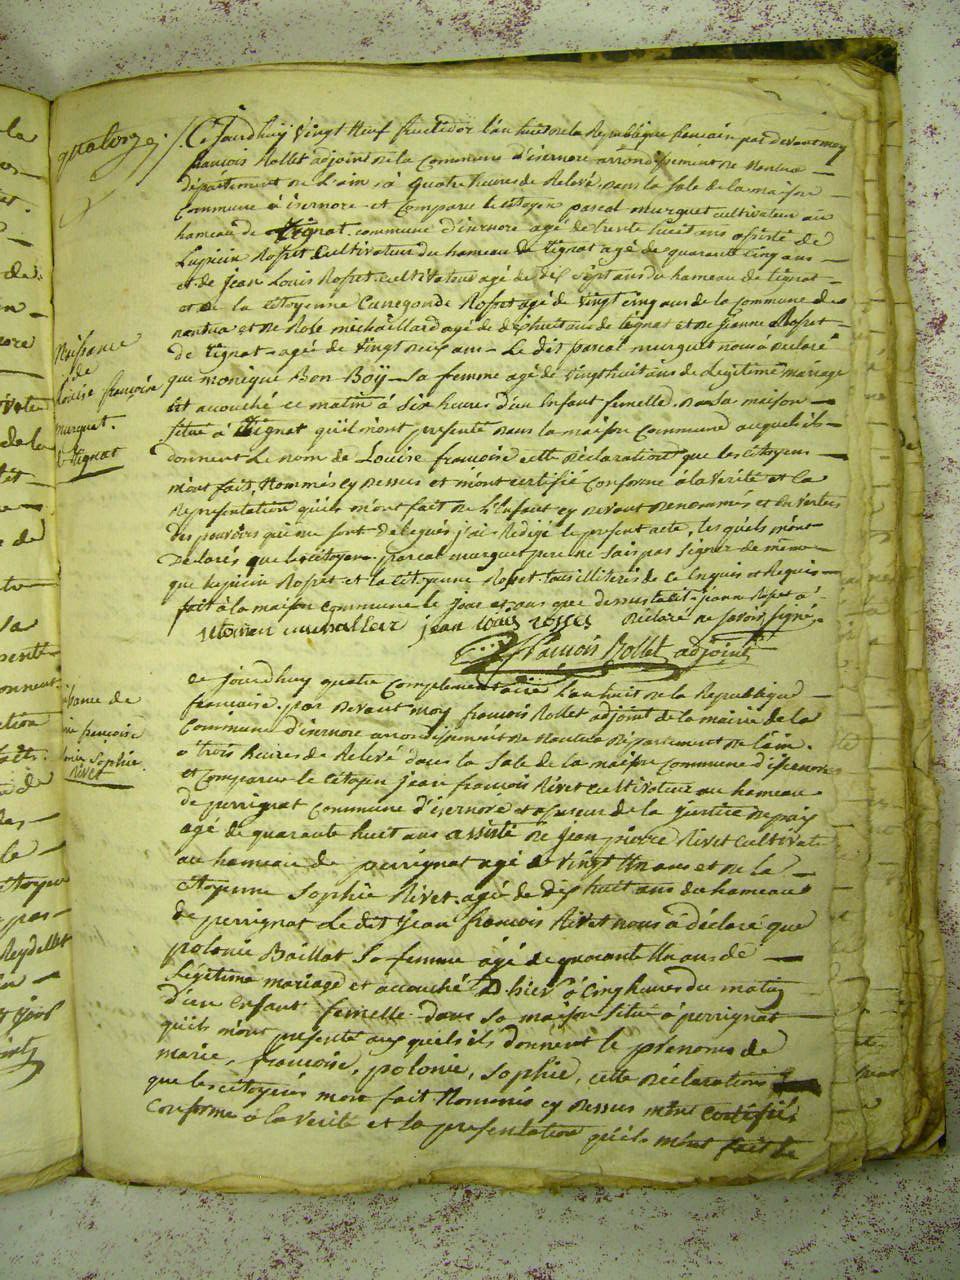 quatorze
Ce Jourdhuy vingt Neuf fructidor l'an huit de la Republique francaise par devant moy
françois Rollet adjoint de la Commune d'isernore arrondissement de Nantua
département de L'ain, à quatre heures de Relevé, dans la Sale de la maison
Commune d'isernore et Comparu le Citoyen pascal murguet cultivateur au
hameau de tignat commune d'isernore agé de trente huit ans assisté de
Lupicin Rosset Cultivateur du hameau de tignat agé de quarante cinq ans
et de jean Louis Rosset Cultivateur agé de dix Sept ans du hameau de tignat
et de la Citoyenne Cunegonde Rosset agé de vingt cinq ans de la Commune de
nantua et de Rose michaillard agé de dixhuit ans de tignat et de jeanne Rosset
de tignat agé de vingt deux ans Le dit pascal murguet nous à Déclaré
que monique Bon Boÿ Sa femme agé de vingt huit ans de Légitime mariage
Est accouché ce matin à Six heures d'un Enfant femelle dans Sa maison
Situé à tignat qu'il m'ont presenté dans la maison Commune auquel ils
donnent Le nom de Louise françoise cette Déclaration que les Citoyens
m'ont fait, Nommés cy Dessus et m'ont certifié Conforme à la Verité et la
Representation qu'ils m'ont fait de L'Enfant cy devant Denommés et En vertu
des pouvoirs qui me Sont Delegués j'ai Rédigé le present acte, lesquels m'ont
Déclarés que le Citoyen pascal murguet pere ne Sais pas Signer de même
que Lupicin Rosset et la Citoyenne Rosset tous illiterés de ce Enquis et Requis
fait à la maison Commune le jour et ans que dessus jeanne Rosset à
jean Louis rosset Déclaré ne Savoir signé
françois Rollet adjoint
Naissance
de
Louise françoise
murguet
de tignat
Ce jourdhuy quatre Complementaire L'an huit de la Republique
française, par Devant moy françois Rollet adjoint de la mairie de la
Commune d'isernore arrondissement de Nantua Département de l'ain
à trois heures de Relevé dans la Sale de la maison Commune d'isernore
et Comparu le Citoyen jean françois Rivet Cultivateur au hameau
de perrignat Commune d'isernore et assesseur de la justice de paix
agé de quarante huit ans assisté de jean pierre Rivet Cultivate
au hameau de perrignat agé de vingt Un ans et de la
Citoyenne Sophie Rivet agé de dix huit ans du hameau
de perrignat Le dit jean françois Rivet nous à déclaré que
polonie Baillat Sa femme agé de quarante Un ans de
Légitime mariage et accouché D'hier à Cinq heures du matin
d'un Enfant femelle dans Sa maison Situé à perrignat
qu'ils mont presenté auxquels ils donnent le prenoms de
marie, françoise, polonie, Sophie, cette Déclaration
que les Citoyens mont fait Nommés cy Dessus m'ont certifiés
Conforme à la Verité et la presentation qu'ils m'ont fait de
sance de
françoise
Sophie
Rivet